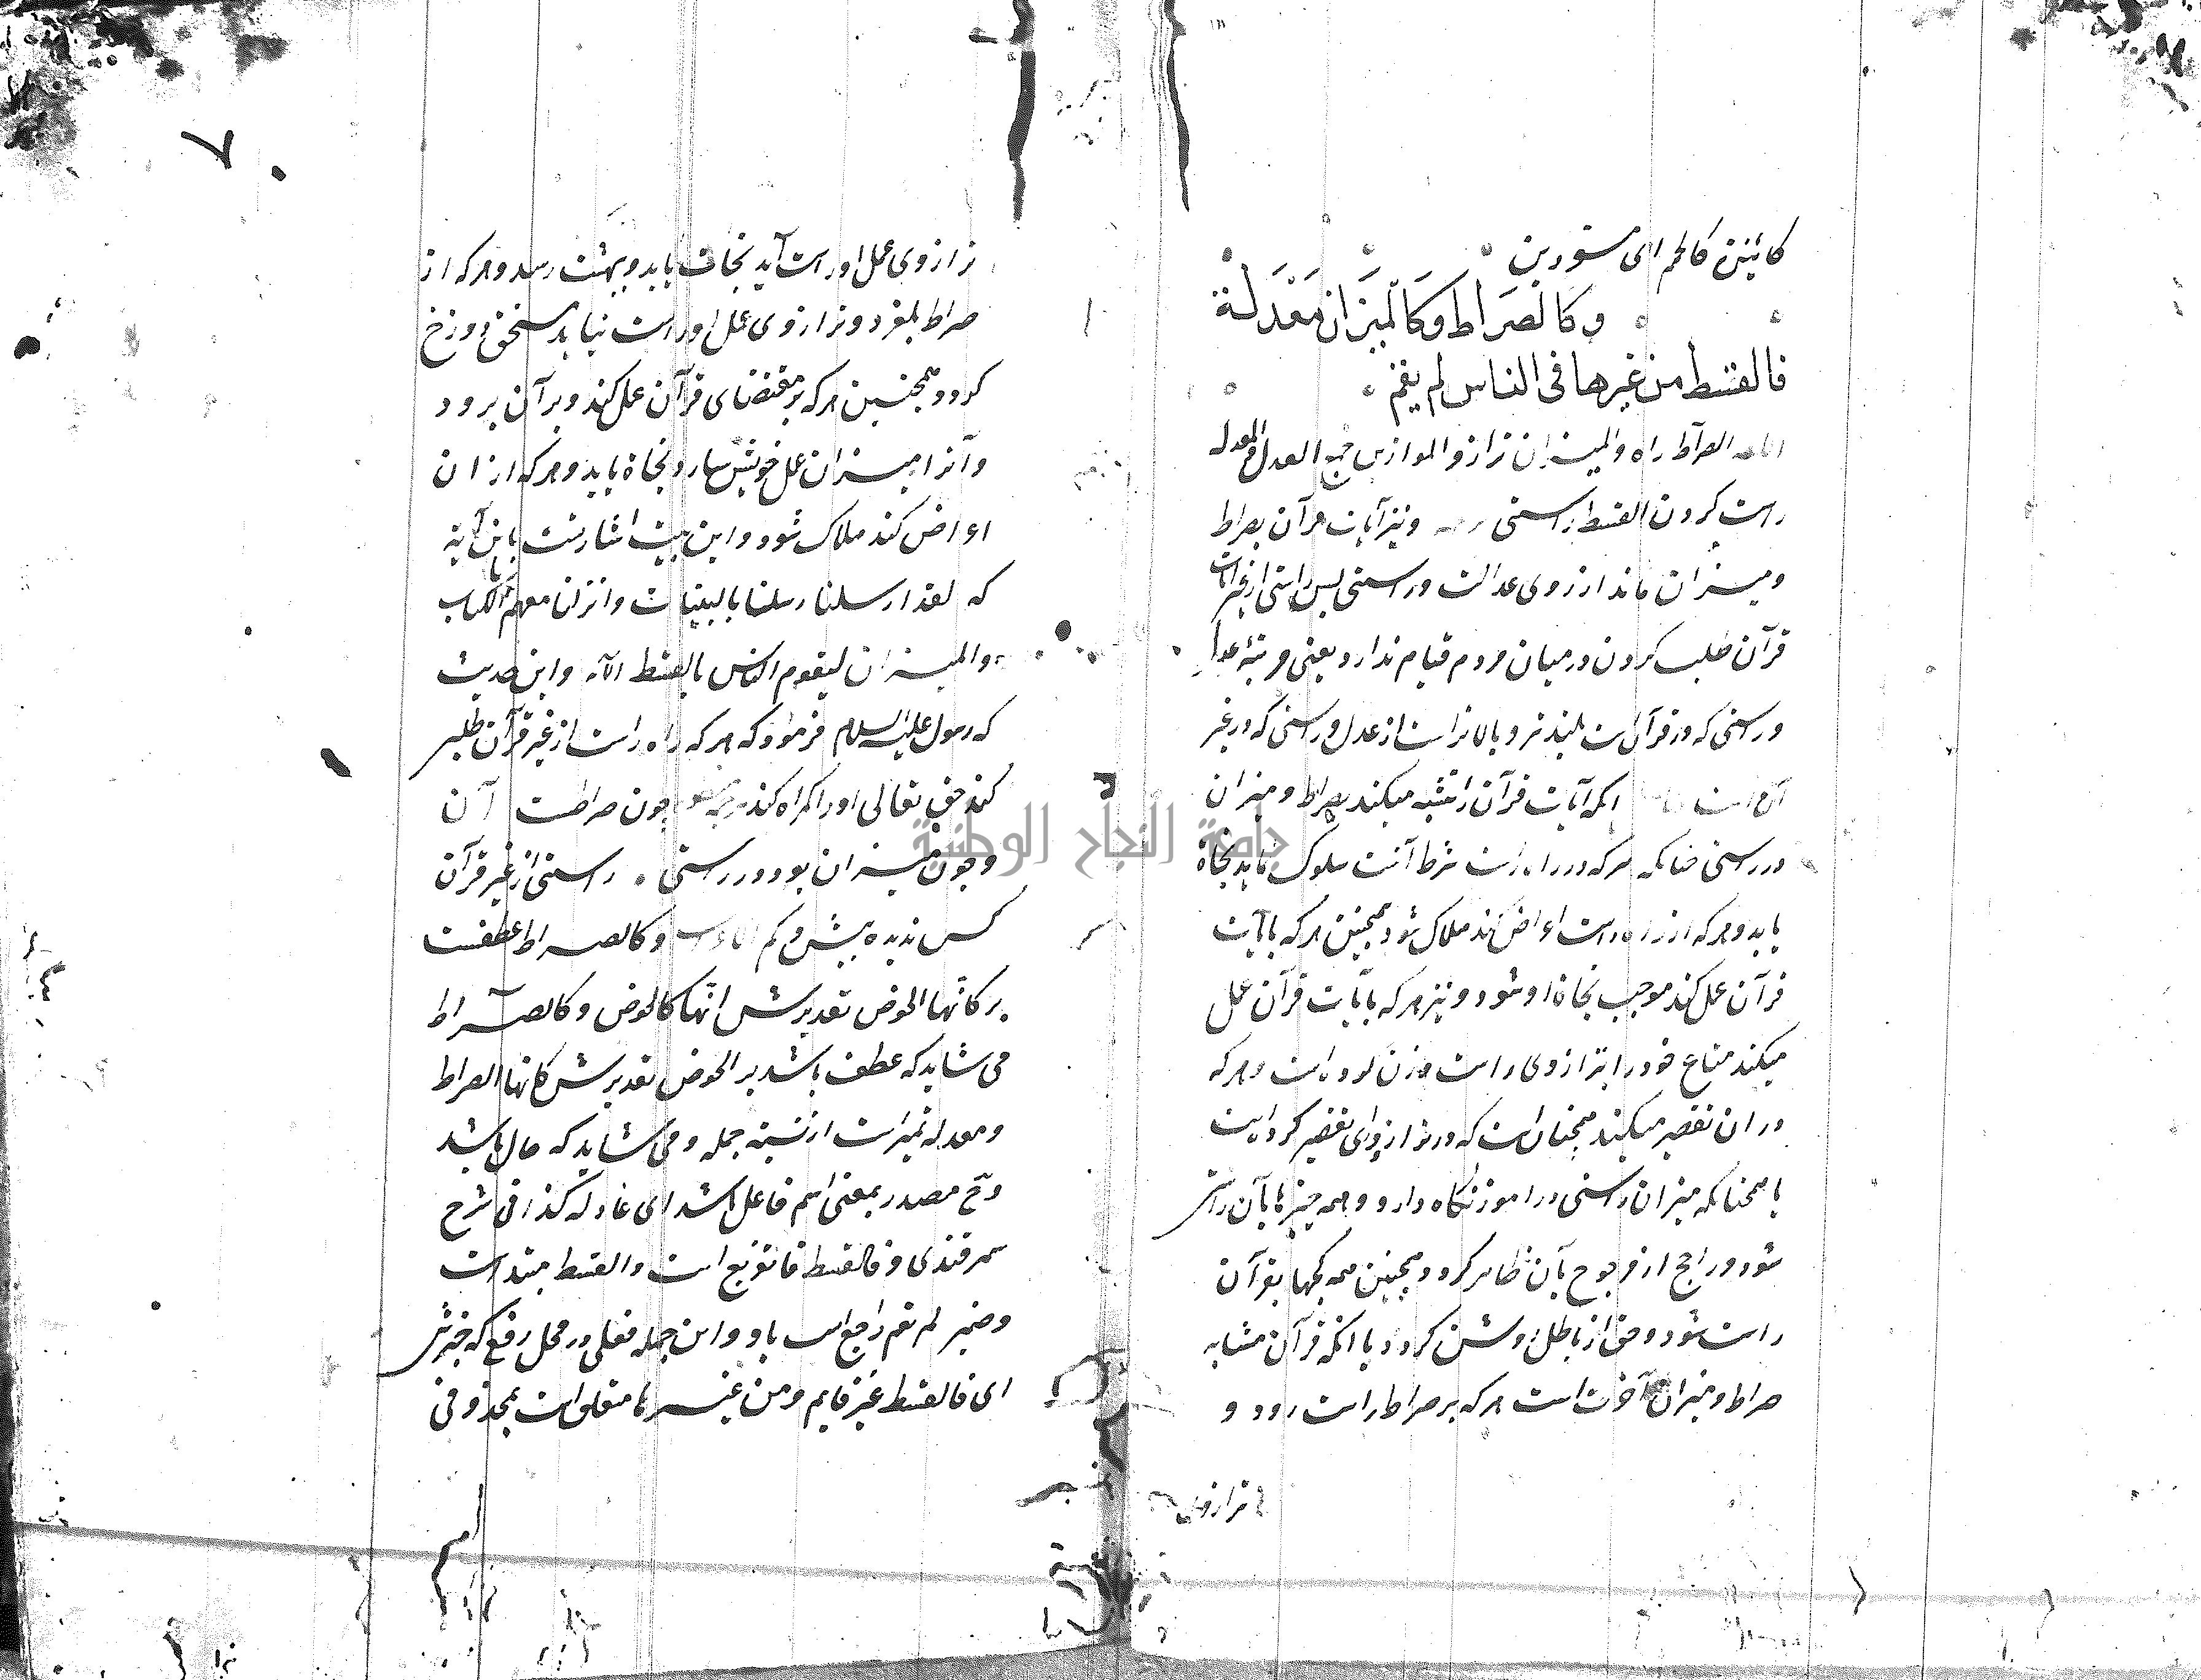 كائنين كالحمم اى مسودين
وَكَالصِّرَاطِ وَكَالْمِيزَانِ مَعْدَلَةً
فالقسط من غيرها فى الناس لم يقم
الصراط راه والميزان ترازو الموازين جمع العدل والمعدلة
راست كردن القسط راستى ونيز آيات قرآن بصراط
وميزان ماند از روى عدالت وراستى پس راستى از غير آيات
قرآن طلب كردن درميان مردم قيام ندارد يعنى مرتبۀ عدل
وراستى كه در قرآن است بلندتر و بالاتر است از عدل وراستى كه در غير
آن است آنكه آيات قرآن را تشبيه ميكند بصراط وميزان
در راستى چنانكه هركه در راه راست شرط آنست سلوك نمايد نجاة
يابد وهركه از راه راست اعراض كند هلاك شود همچنين هركه بآيات
قرآن عمل كند موجب نجاة او شود ونيز هركه بآيات قرآن عمل
ميكند متاع خود را بترازوى راست وزن كرده است وهركه
در ان تقصير ميكند همچنان است كه در ترازوى تقصير كرده است
يا همچنانكه ميزان راستى را نگاه دارد وهمه چيزها بآن راست
شود وراجح از مرجوح بآن ظاهر كردد همچنين همه كجها بقرآن
راست شود وحق از باطل روشن كردد يا آنكه قرآن مشابه
صراط وميزان آخرت است هركه بر صراط راست رود و
ترازوى
ترازوى عمل او راست آيد نجات يابد وببهشت رسد وهركه از
صراط بلغزد وترازوى عمل او راست نيايد مستحق دوزخ
كردد همچنين هركه بر مقتضاى قرآن عمل كند وبر آن برود
وآنرا ميزان عمل خويش سازد نجاة يابد وهركه از ان
اعراض كند هلاك شود واين بيت اشارتست باين آية
كه لقد ارسلنا رسلنا بالبينات وانزلنا معهم الكتاب
والميزان ليقوم الناس بالقسط الآية واين حديث
كه رسول عليه السلام فرمود كه هركه راه راست از غير قرآن طلب
كند حق تعالى او را كمراه كند چون صراطست آن
وچون ميزان بود در راستى . راستى از غير قرآن
كس نديده بيش و كم وكالصراط عطفست
بر كانها الحوض تقديرش انها كالحوض وكالصراط
مى شايد كه عطف باشد بر الحوض تقديرش كانها الصراط
ومعدلة تميز است از نسبة جمله ومى شايد كه حال باشد
وح مصدر بمعنى اسم فاعل باشد اى عادلة كذا فى شرح
سمرقندى وفالقسط فا تفريع است والقسط مبتداست
وضمير لم يقم راجع است باو واين جمله فعلى در محل رفع كه خبرش
اى فالقسط غير قايم ومن غيرها متعلق است بمحذوفى